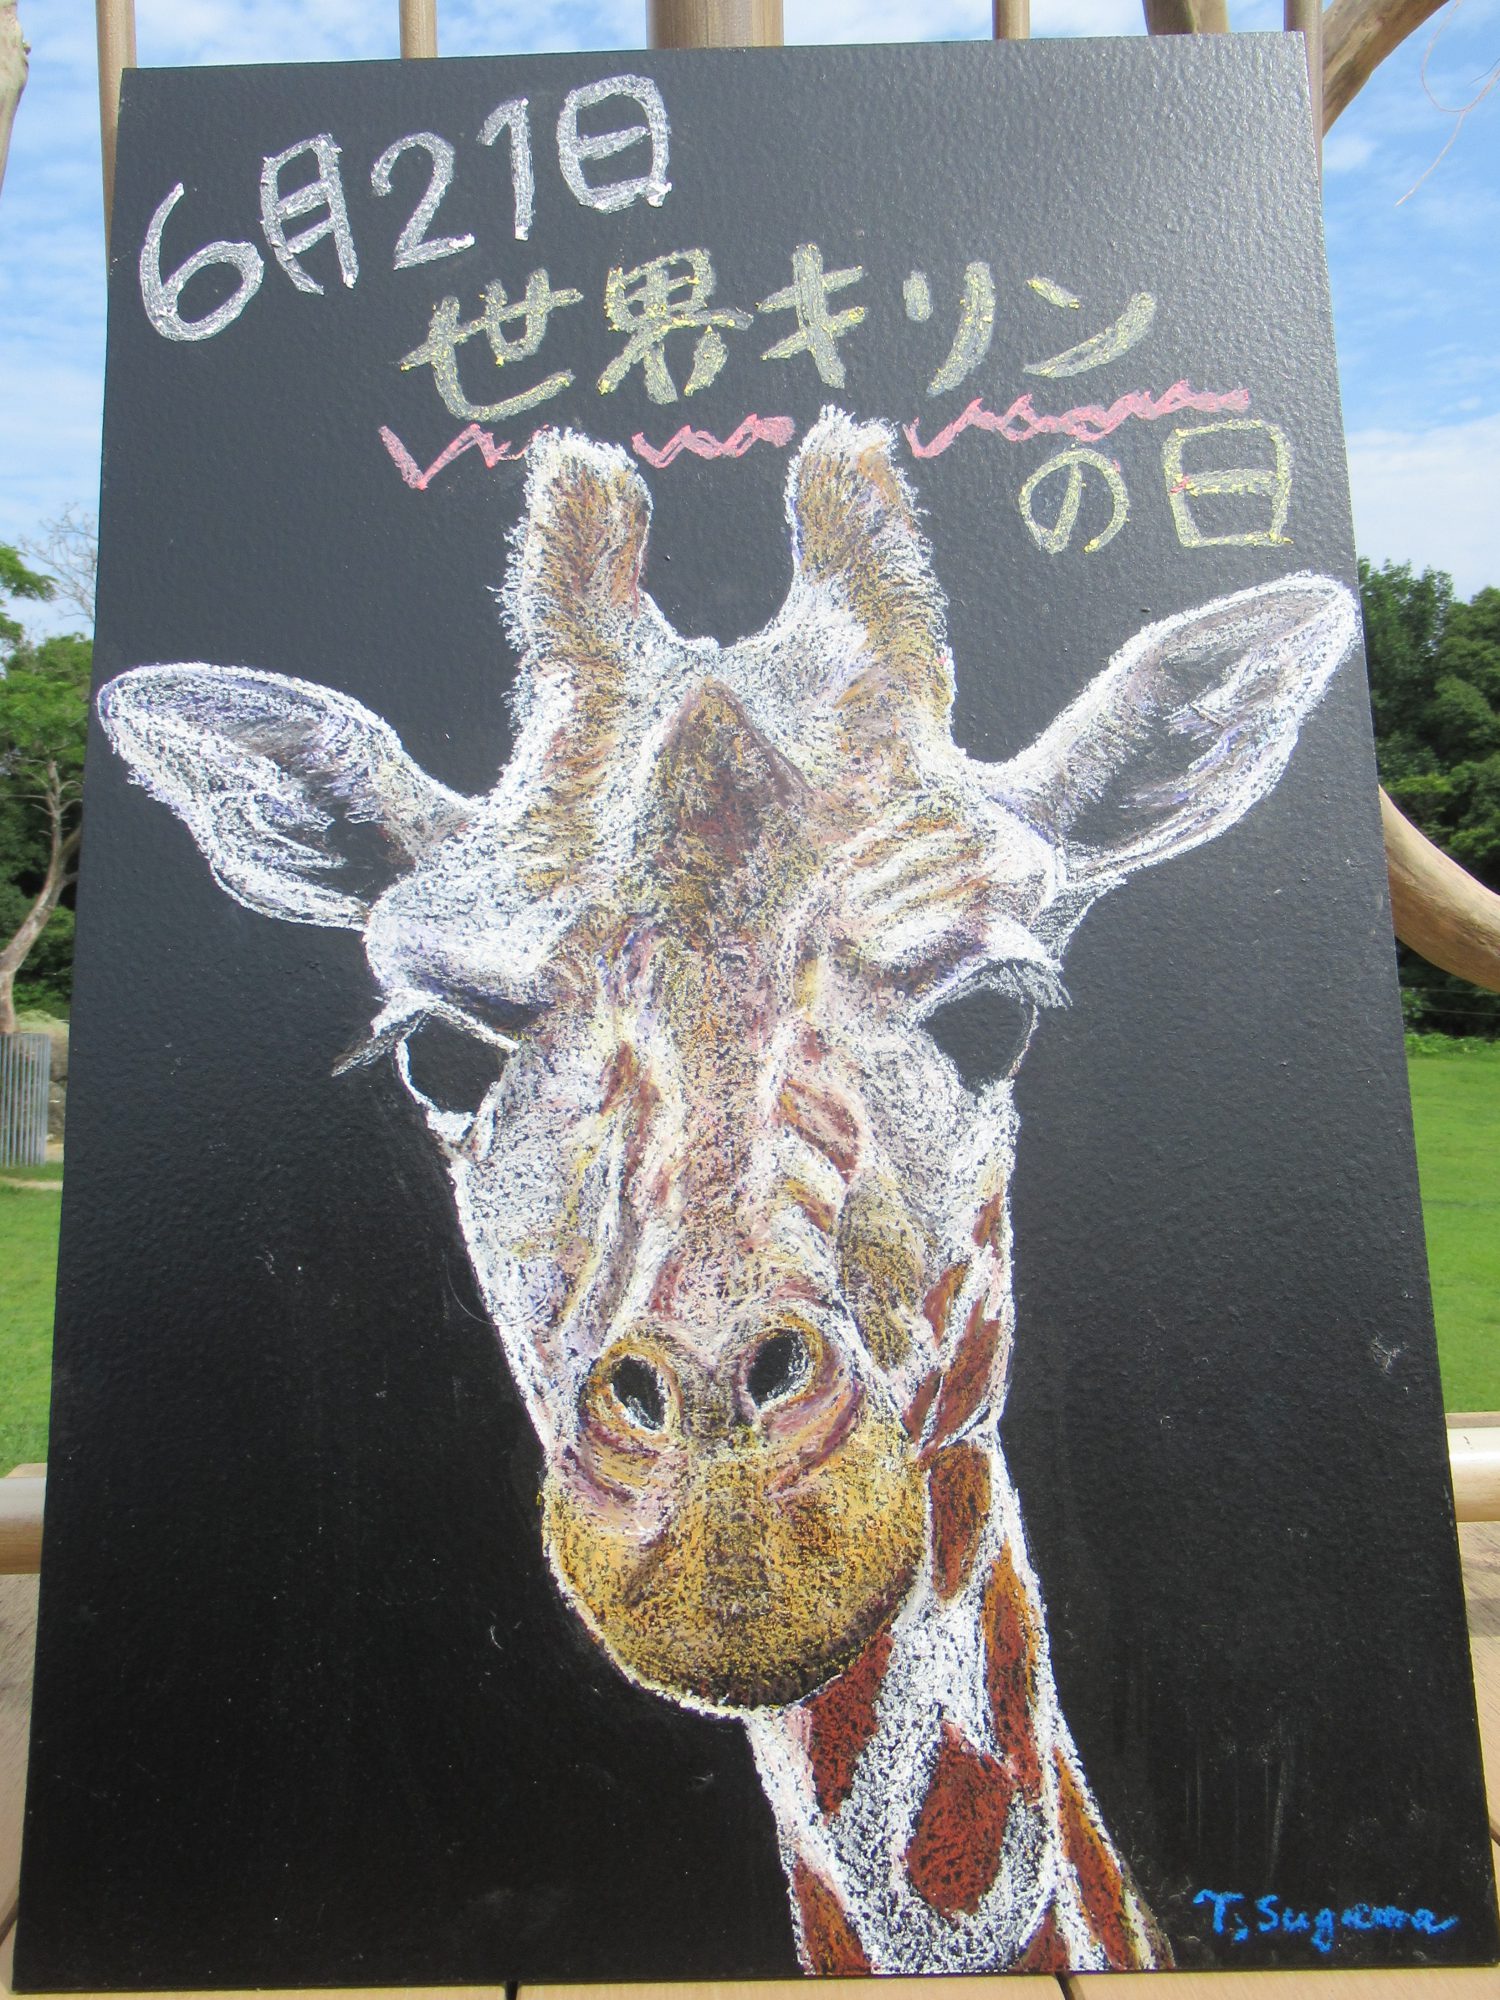 6月21日
世界キリン
の日
T. Sugiema